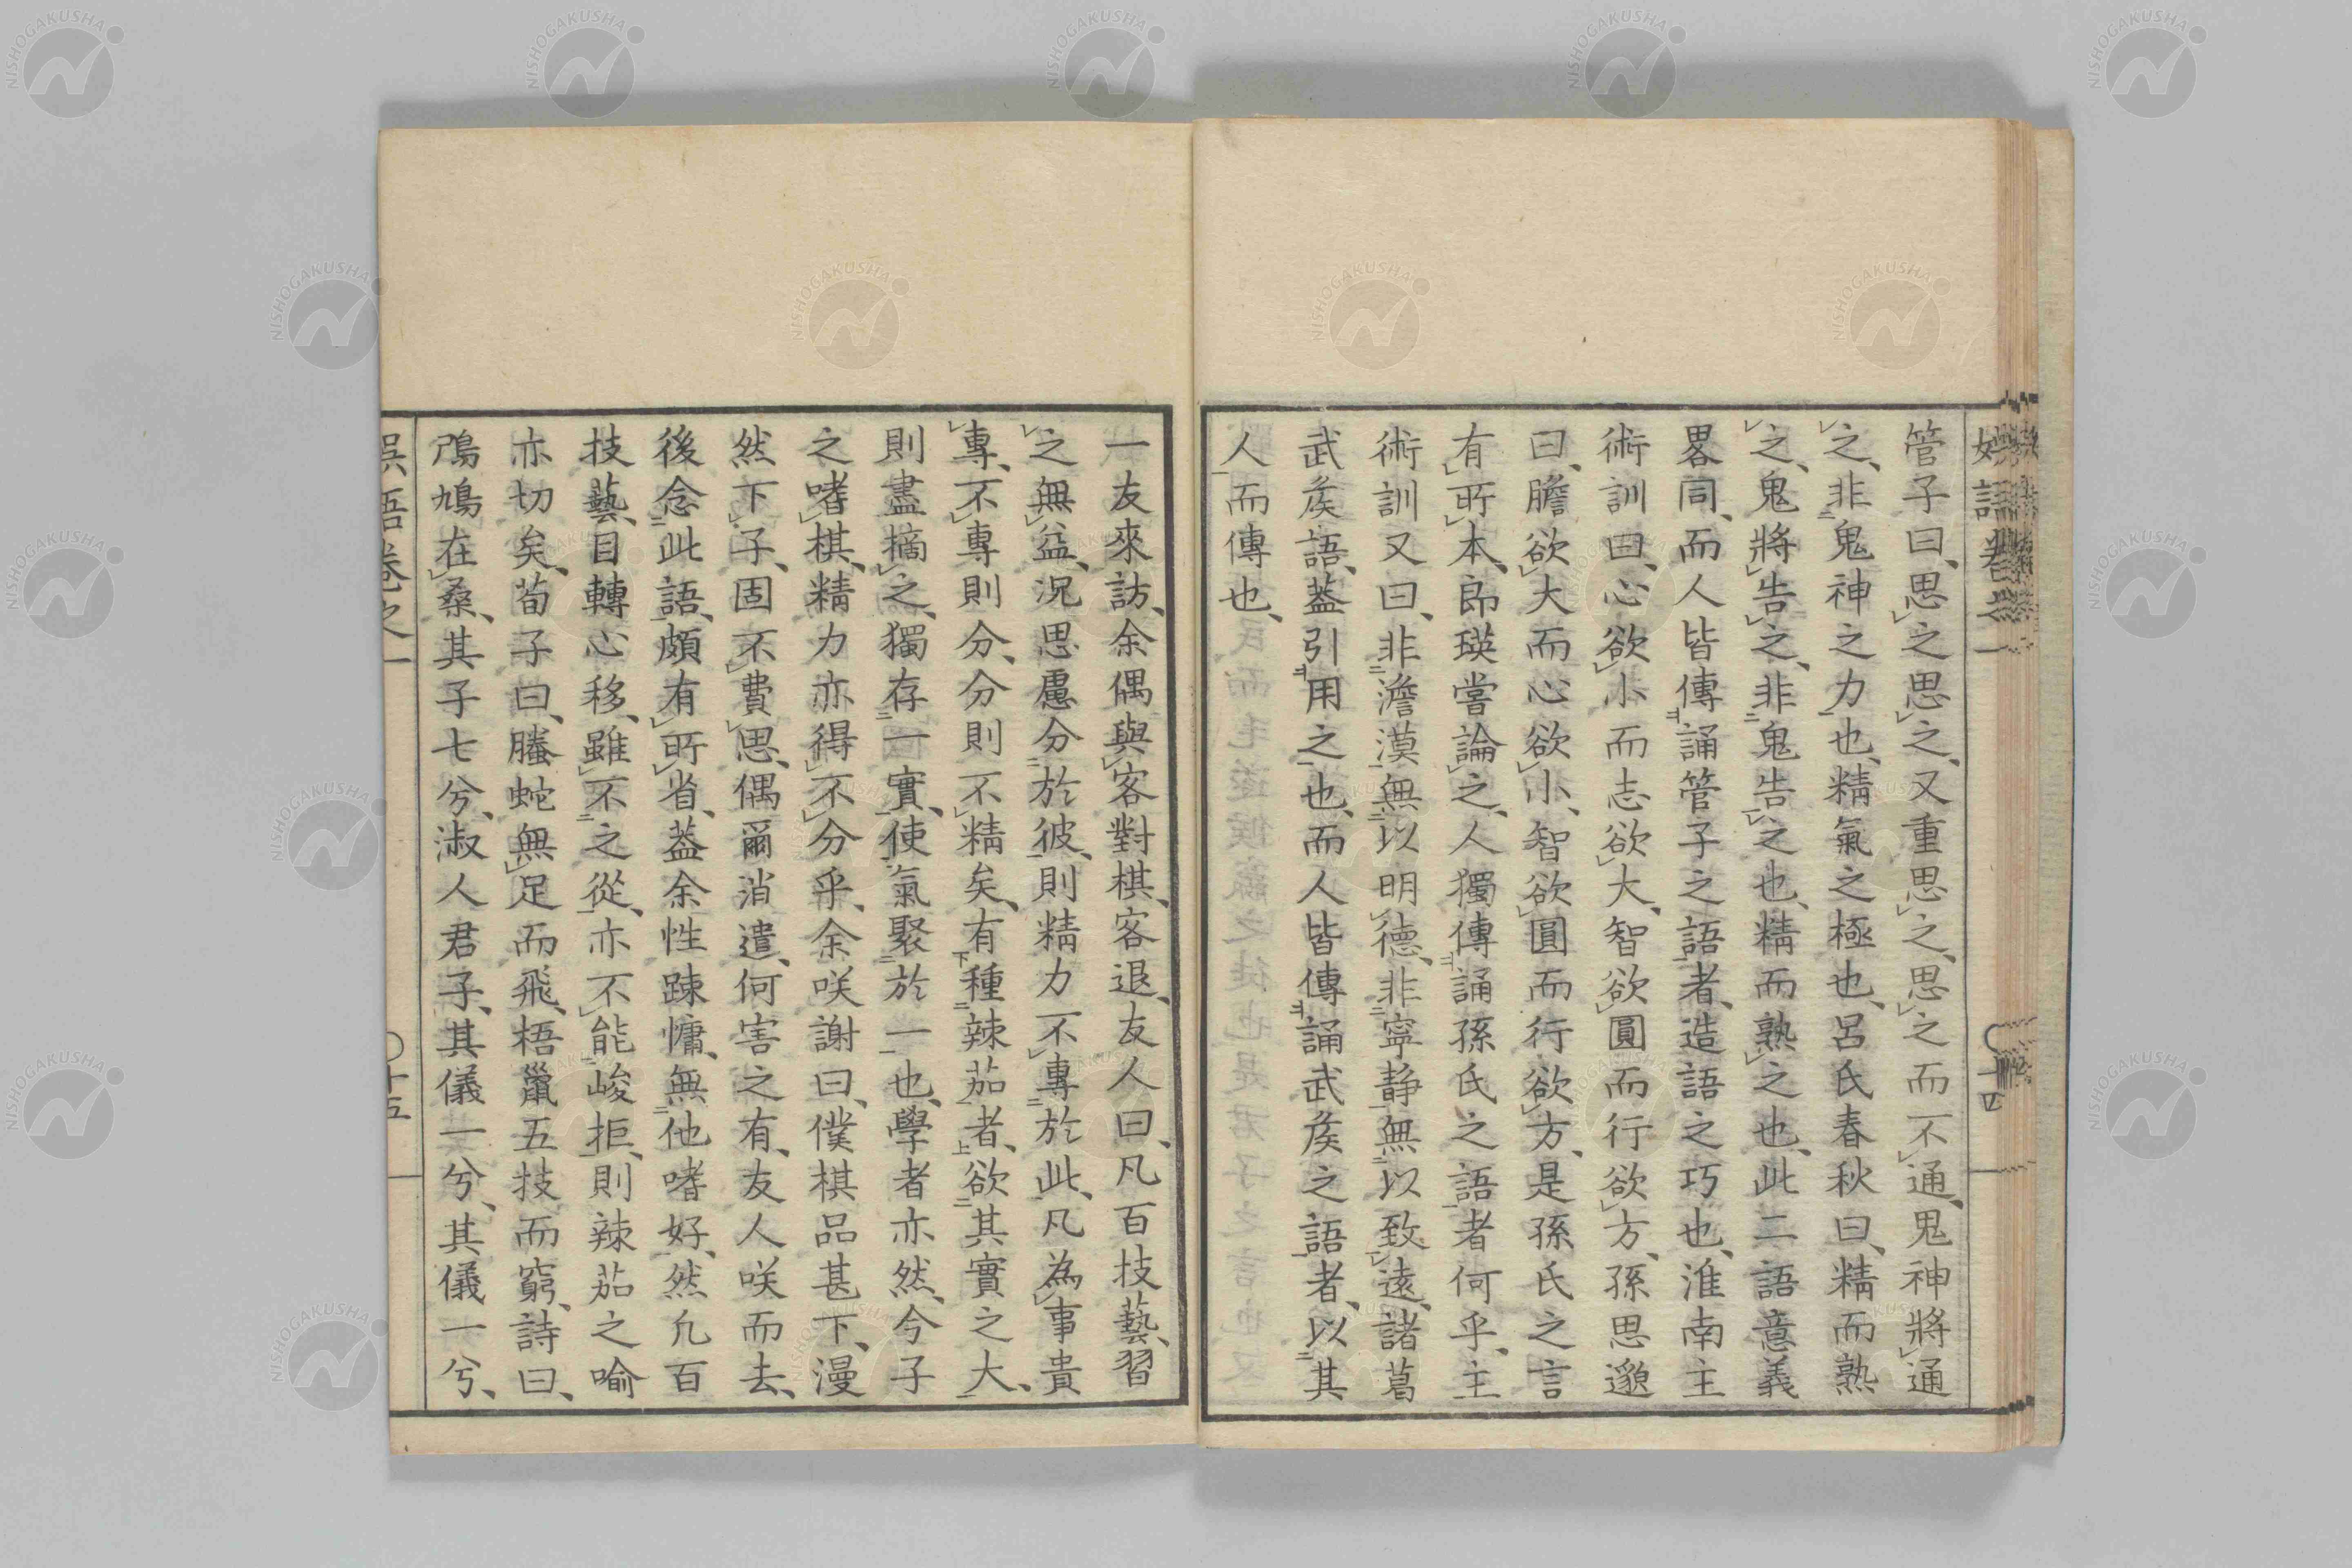 管子曰、思之思之、又重思之、思之而不通、鬼神將通
之、非鬼神之力也、精氣之極也、呂氏春秋曰、精而熟
之、鬼將告之、非鬼告之也、精而熟之也、此二語意義
畧同、而人皆傳誦管子之語者、造語之巧也、淮南主
術訓曰、心欲小而志欲大、智欲圓而行欲方、孫思邈
曰、膽欲大而心欲小、智欲圓而行欲方、是孫氏之言
有所本、郎瑛嘗論之、人獨傳誦孫氏之語者何乎、主
術訓又曰、非澹漠無以明德、非寧静無以致遠、諸葛
武矦語、葢引用之也、而人皆傳誦武矦之語者、以其
人而傳也、
一友來訪、余偶與客對棋、客退、友人曰、凡百技藝、習
之無益、況思慮分於彼、則精力不專於此、凡為事貴
專、不專則分、分則不精矣、有種辣茄者、欲其實之大、
則盡摘之、獨存一實、使氣聚於一也、學者亦然、今子
之嗜棋、精力亦得不分乎、余咲謝曰、僕棋品甚下、漫
然下子、固不費思、偶爾消遣、何害之有、友人咲而去、
後念此語、頗有所省、葢余性踈慵、無他嗜好、然凢百
技藝、目轉心移、雖不之從、亦不能峻拒、則辣茄之喻
亦切矣、荀子曰、螣蛇無足而飛、梧鼠五技而窮、詩曰、
鳲鳩在桑、其子七兮、淑人君子、其儀一兮、其儀一兮、
語卷之一
〇十五